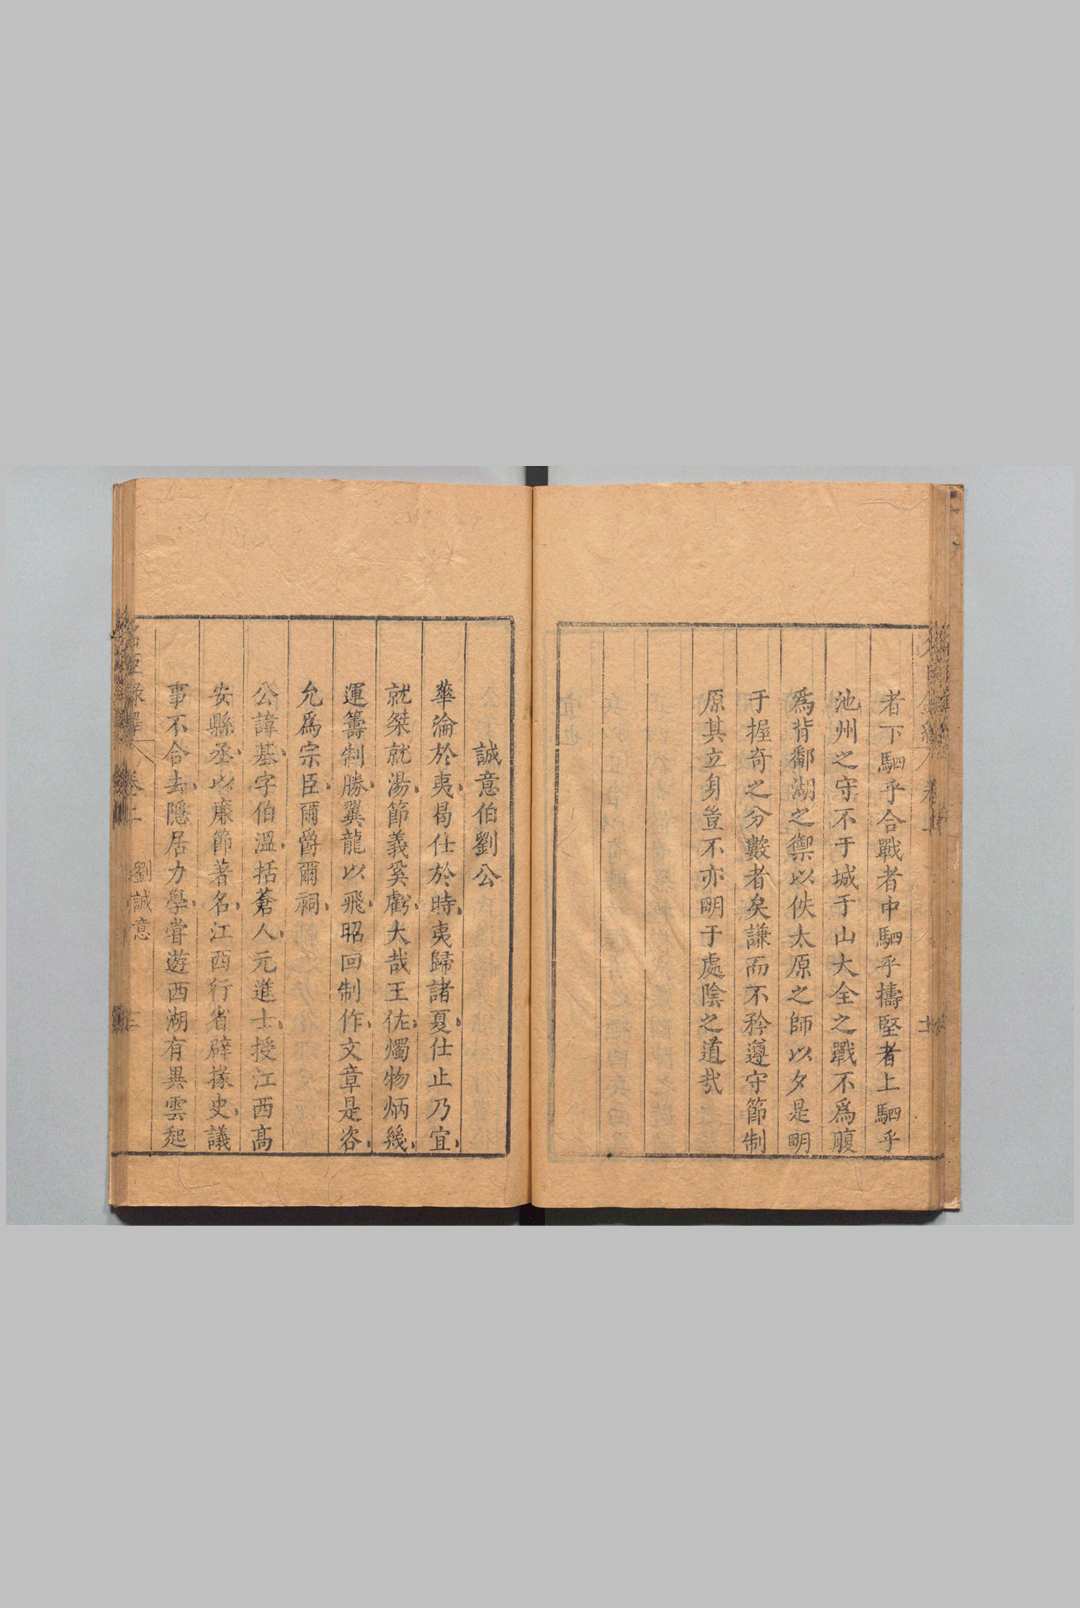 者下駟乎合戰者中駟乎擣堅者上駟乎
池州之守不于城于山大全之戰不爲腹
爲背鄱湖之禦以佚太原之師以夕是明
于握奇之分數者矣謙而不矜遵守節制
原其立身豈不亦明于處陰之道哉
誠意伯劉公
華淪於夷曷仕於時夷歸諸夏仕止乃宜
就桀就湯節義奚虧大哉王佐燭物炳幾
運籌制勝翼龍以飛昭回制作文章是咨
允爲宗臣爾爵爾祠
公諱基字伯溫括蒼人元進士授江西高
安縣丞以廉節著名江西行省辟掾史議
事不合去隱居力學嘗遊西湖有異雲起
卷二 劉誠意